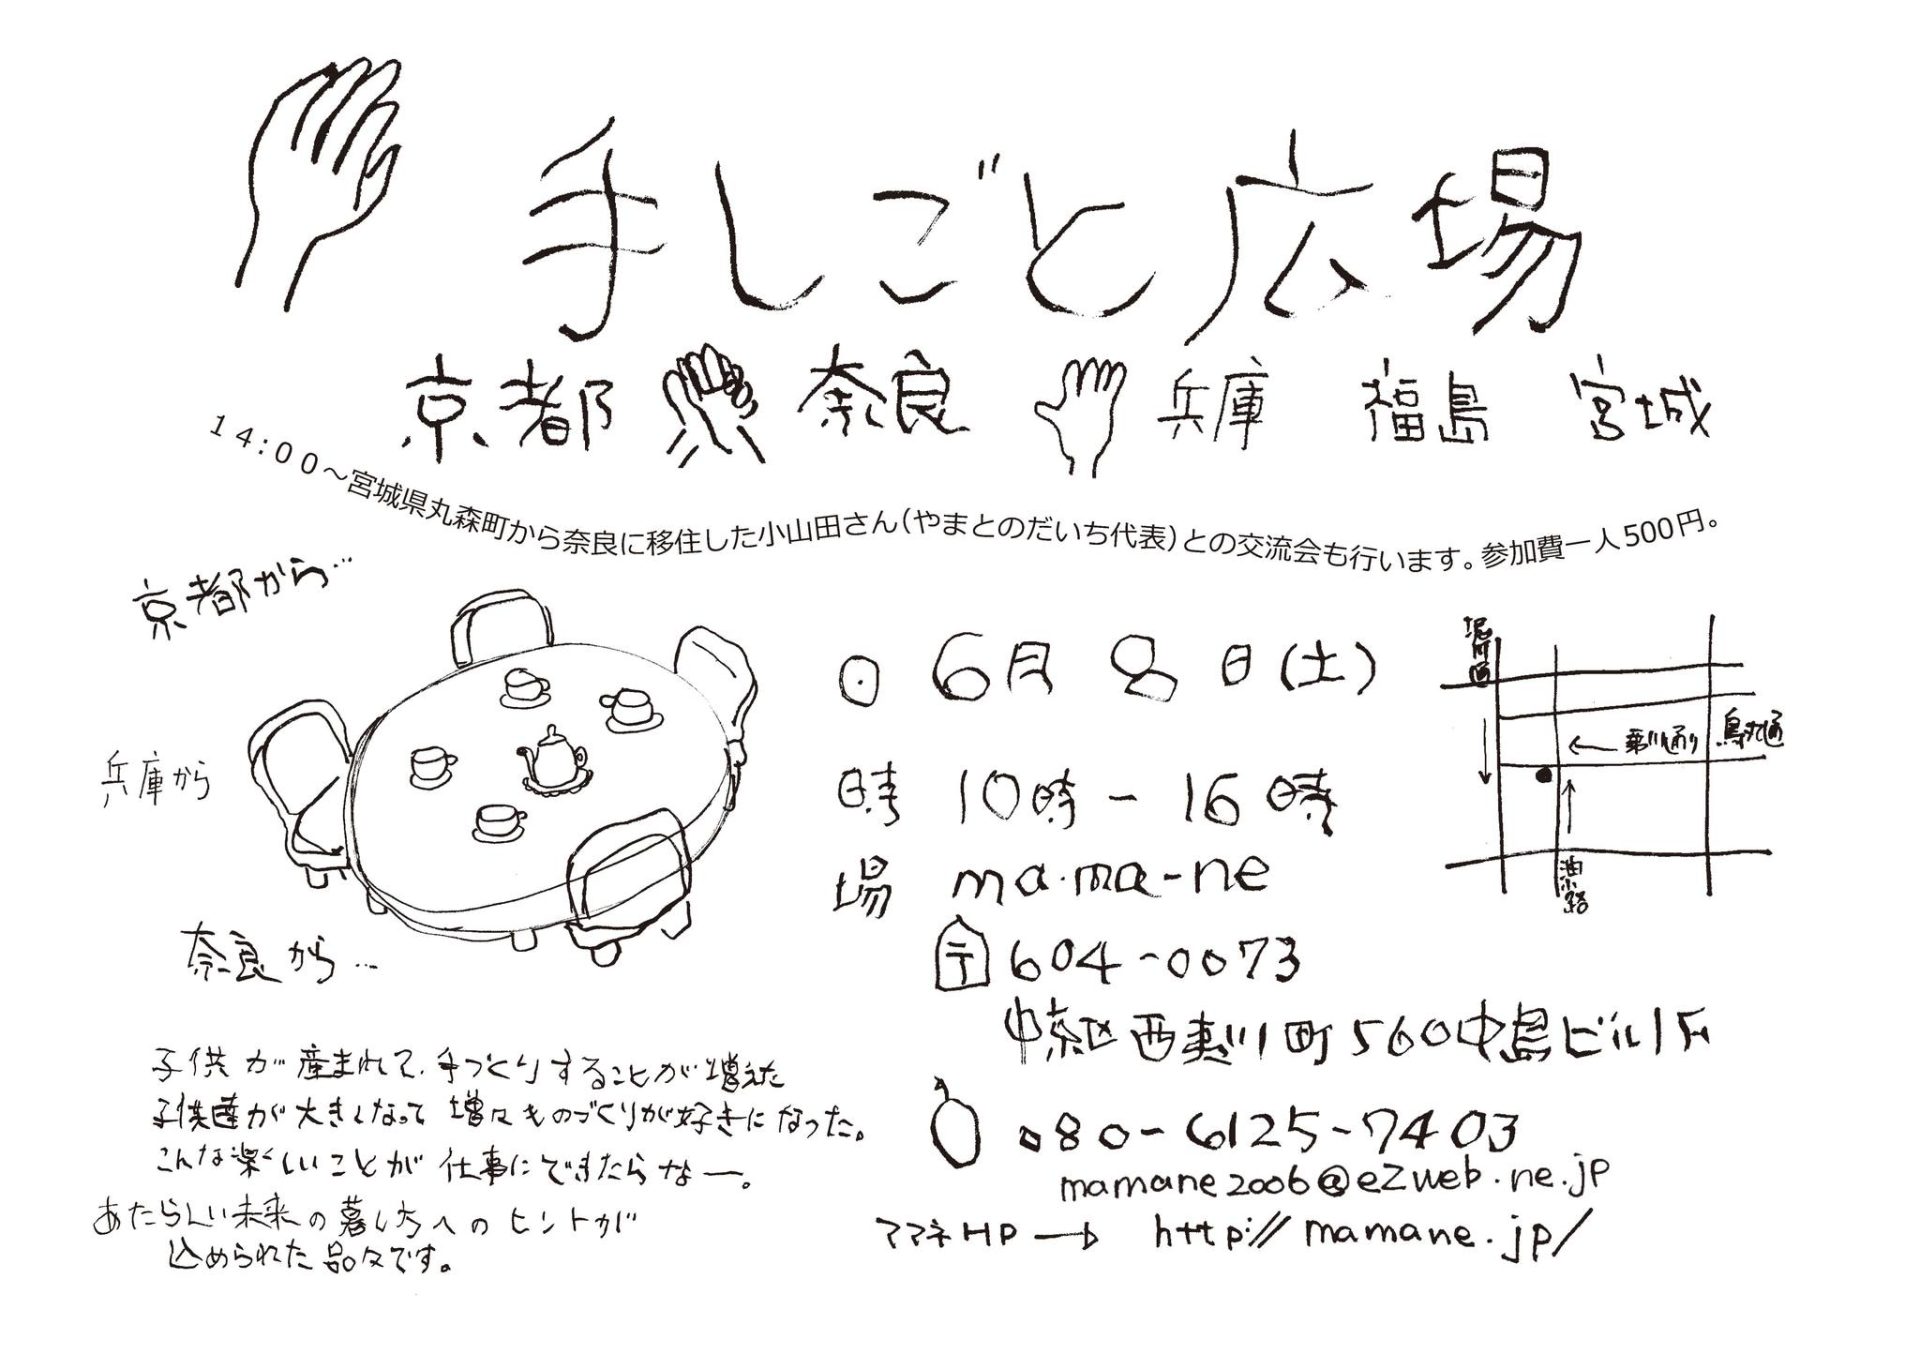 手しごと広場
京都 奈良 兵庫 福島 宮城
14:00～宮城県丸森町から奈良に移住した小山田さん（やまとのだいち代表）との交流会も行います。参加費一人500円。
京都から…
兵庫から
奈良から…
日 6月8日(土)
時 10時-16時
場 ma-ma-ne
〒604-0073
中京区西夷川町560中島ビル1F
080-6125-7403
mamane2006@ezweb.ne.jp
ママネHP→ http://mamane.jp/
堀川通
←夷川通り
烏丸通
油小路
子供が産まれて、手づくりすることが増えた
子供達が大きくなって増々ものづくりが好きになった。
こんな楽しいことが仕事にできたらなー。
あたらしい未来の暮し方へのヒントが
込められた品々です。